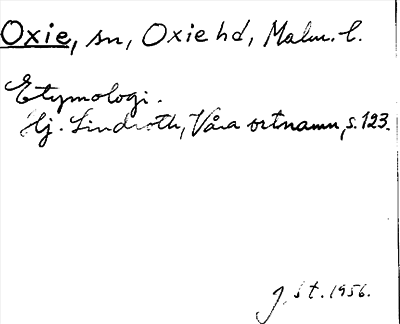 Oxie, sn, Oxie hd, Malm. l.
Etymologi.
Hj. Lindroth, Våra ortnamn, s. 123.
J. St. 1956.